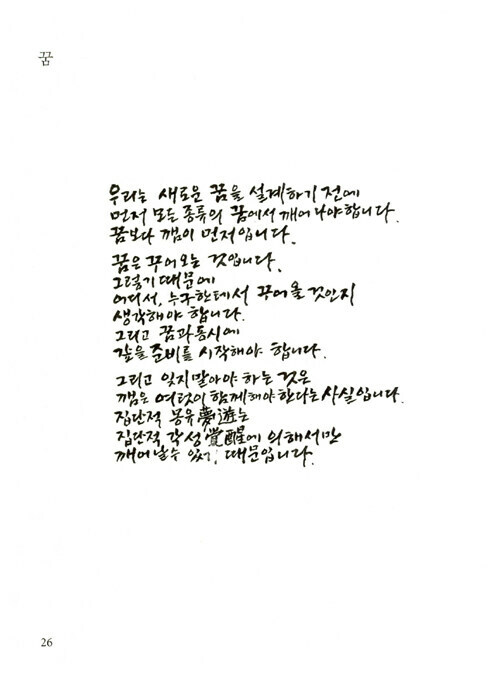 꿈
우리는 새로운 꿈을 설계하기 전에
먼저 모든 종류의 꿈에서 깨어나야합니다.
꿈보다 깸이 먼저입니다.
꿈은 꾸어오는 것입니다.
그렇기 때문에
어디서, 누구한테서 꾸어올 것인지
생각해야 합니다.
그리고 꿈과 동시에
갚을 준비를 시작해야 합니다.
그리고 잊지말아야 하는 것은
깸은 여럿이 함께해야 한다는 사실입니다.
집단적 몽유夢遊는
집단적 각성覺醒에 의해서만
깨어날 수 있기 때문입니다.
26